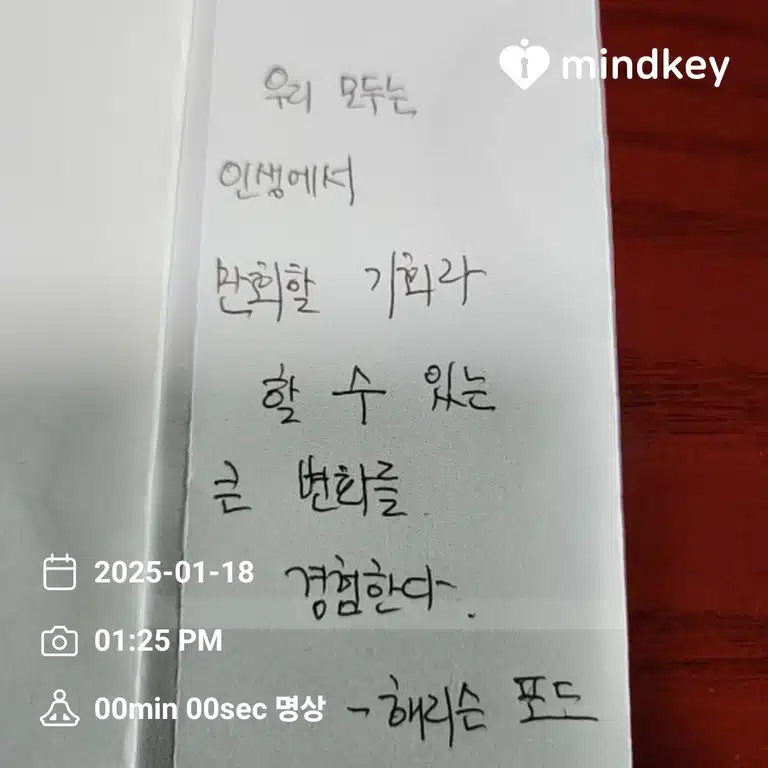 mindkey
우리 모두는
인생에서
만회할 기회라
할 수 있는
큰 변화를
경험한다.
2025-01-18
01:25 PM
00min 00sec 명상
- 해리슨 포드